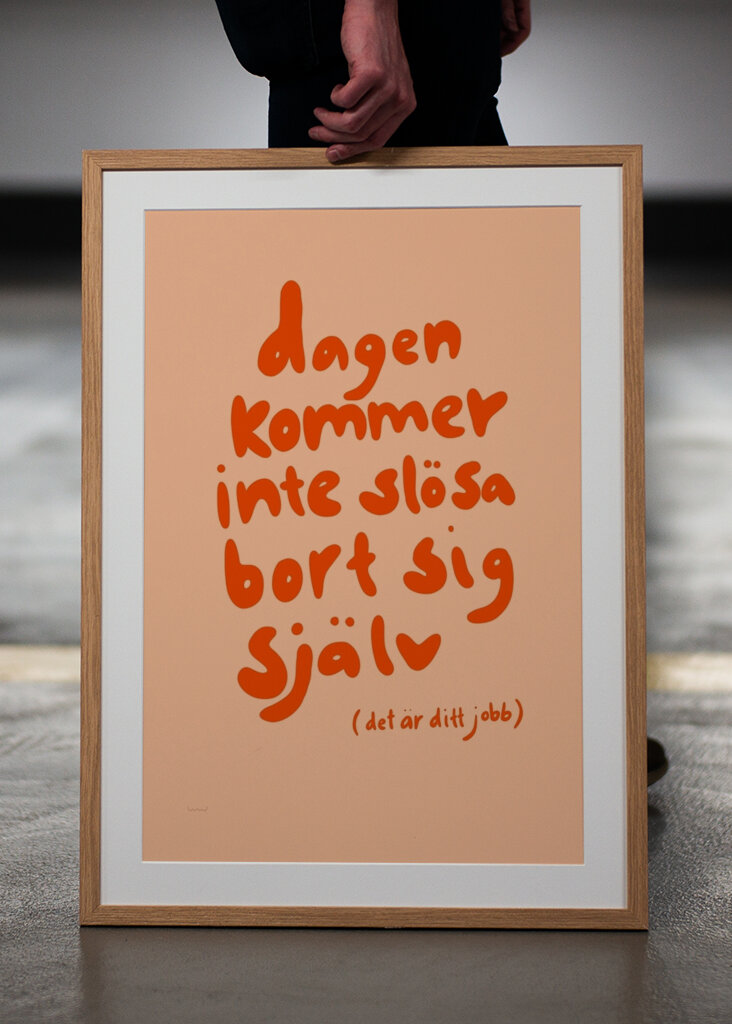 dagen
kommer
inte slösa
bort sig
själv
(det är ditt jobb)